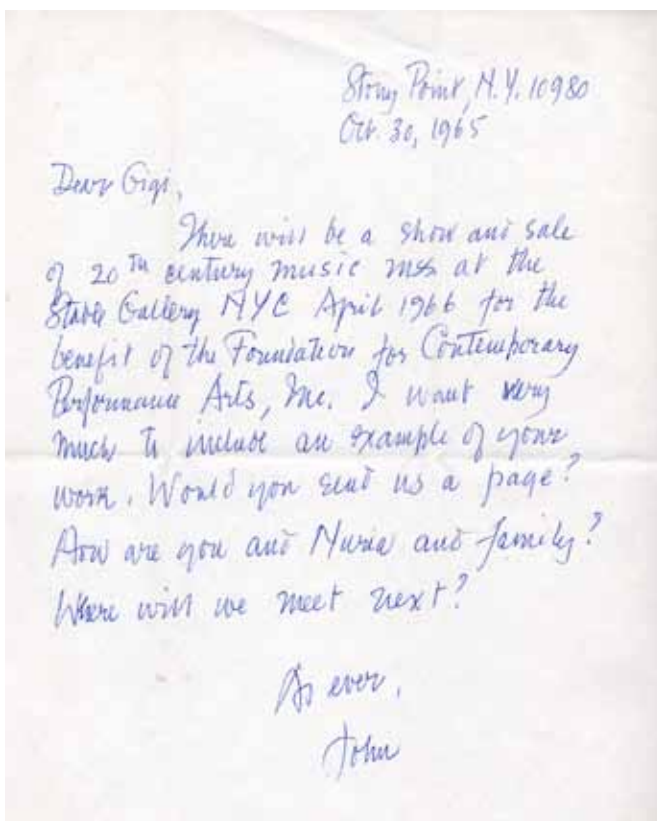 Stony Point, N.Y. 10980
Oct. 30, 1965
Dear Gigi,
There will be a show and sale
of 20th century music mss at the
Stable Gallery NYC April 1966 for the
benefit of the Foundation for Contemporary
Performance Arts, Inc. I want very
much to include an example of your
work. Would you send us a page?
How are you and Nuria and family?
Where will we meet next?
As ever,
John